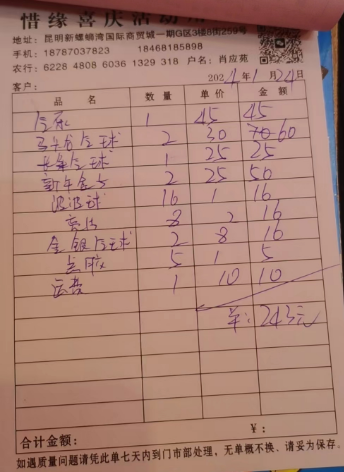 惜缘喜庆活动
地址：昆明新螺蛳湾国际商贸城一期G区3楼8街259号
手机：18787037823 18468185898
农行：6228 4808 6036 1329 318 户名：肖应苑
客户： 2024年1月24日
品名 数量 单价 金额
气泵 1 45 45
气球 2 30 70 60
气球 1 25 25
新年 2 25 50
波波球 16 1 16
8 2 16
金银气球 2 8 16
点胶 5 1 5
运费 1 10 10
单：243元
合计金额： ¥：
如遇质量问题请凭此单七天内到门市部处理，无单概不换、请妥为保存。